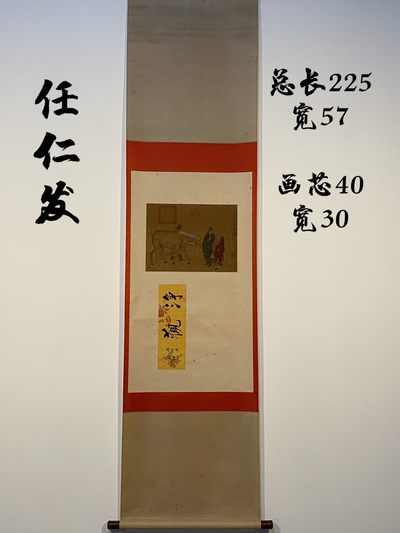 任仁发
总长225
宽57
画芯40
宽30